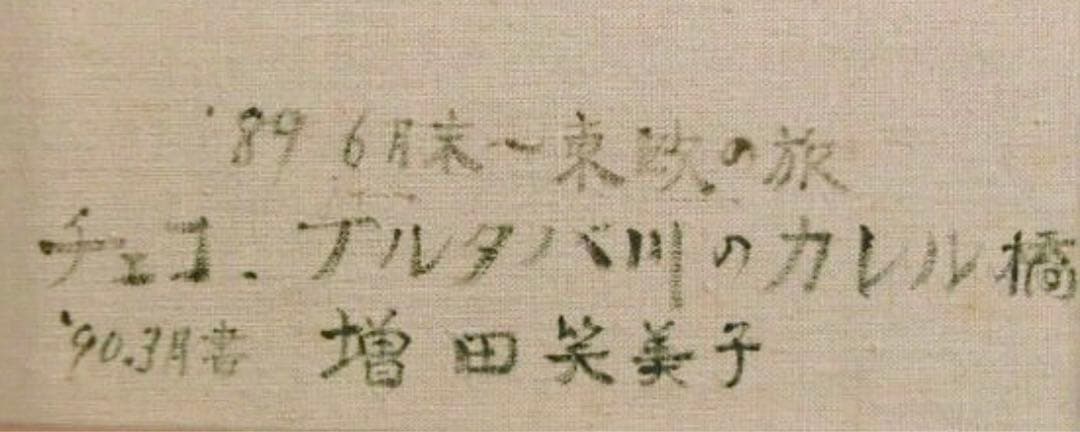 '89 6月末〜東欧の旅
チェコ、ブルタバ川のカレル橋
'90.3月書 増田笑美子